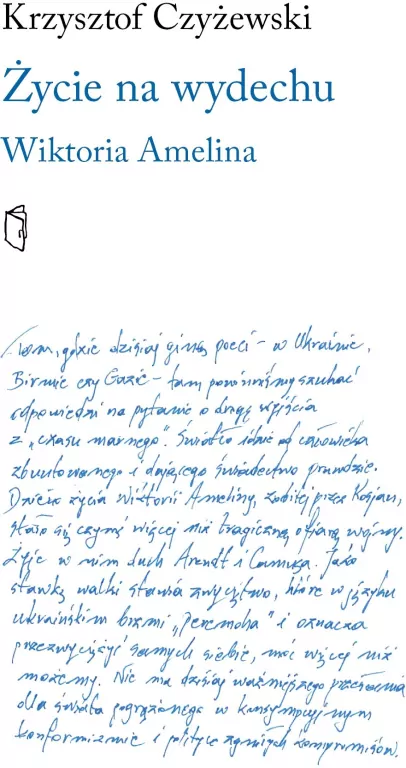 Krzysztof Czyżewski
Życie na wydechu
Wiktoria Amelina
Tam, gdzie dzisiaj giną poeci – w Ukrainie,
Birmie czy Gazie – tam powinniśmy szukać
odpowiedzi na pytanie o drogę wyjścia
z „czasu marnego”. Światło idzie od człowieka
zbuntowanego i dającego świadectwo prawdzie.
Dzieło życia Wiktorii Ameliny, zabitej przez Rosjan,
stało się czymś więcej niż tragiczną ofiarą wojny.
Żyje w nim duch Arendt i Camusa. Jako
stawkę walki stawia zwycięstwo, które w języku
ukraińskim brzmi „peremoha” i oznacza
przezwyciężyć samych siebie, móc więcej niż
możemy. Nie ma dzisiaj ważniejszego przesłania
dla świata pogrążonego w konsumpcyjnym
konformizmie i polityce zgniłych kompromisów.